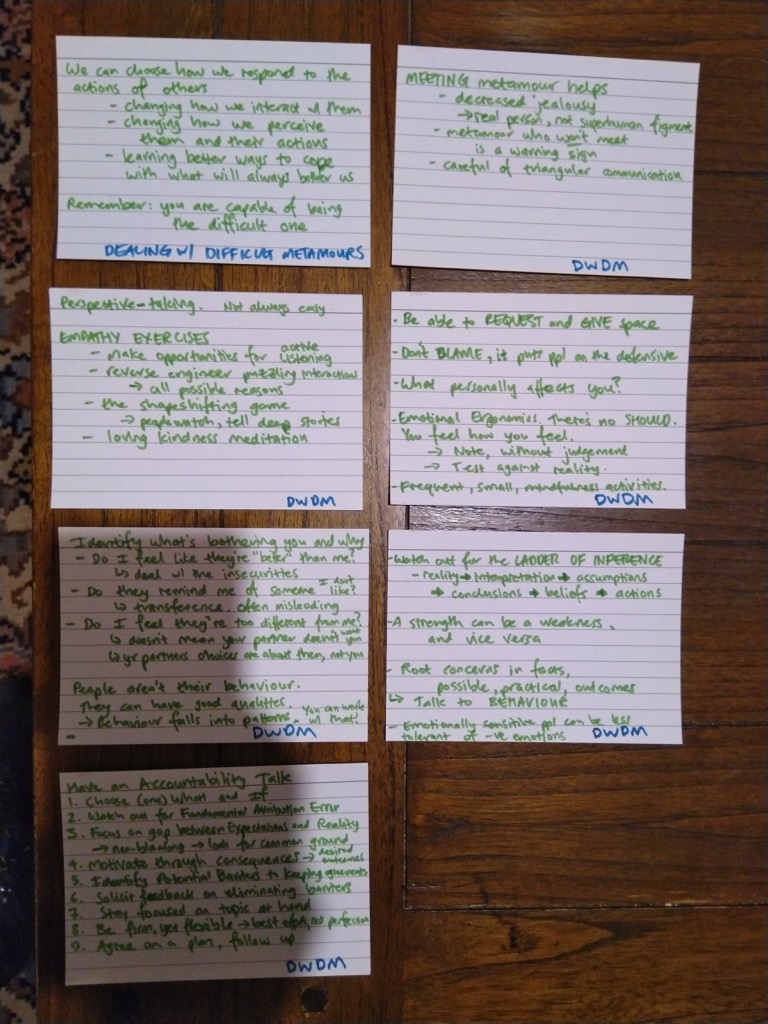 We can choose how we respond to the
actions of others
- changing how we interact w/ them
- changing how we perceive
them and their actions
- learning better ways to cope
with what will always bother us
Remember: you are capable of being
the difficult one
DEALING W/ DIFFICULT METAMOURS
MEETING metamour helps
- decreased jealousy
→ real person, not superhuman figment
- metamour who won't meet
is a warning sign
- careful of triangular communication
DWDM
Perspective-taking. Not always easy.
EMPATHY EXERCISES
- make opportunities for active listening
- reverse engineer puzzling interaction
→ all possible reasons
- the shapeshifting game
→ peoplewatch, tell deep stories
- loving kindness meditation
DWDM
- Be able to REQUEST and GIVE space
- Don't BLAME, it puts ppl on the defensive
- What personally affects you?
- Emotional Ergonomics. There's no SHOULD.
You feel how you feel.
→ Note, without judgement
→ Test against reality.
- Frequent, small, mindfulness activities.
DWDM
Identify what's bothering you and why
- Do I feel like they're "better" than me?
↳ deal w/ the insecurities
- Do they remind me of someone I don't like?
↳ transference, often misleading
- Do I feel they're too different from me?
↳ doesn't mean your partner doesn't want you
↳ yr partners choices are about them, not you
People aren't their behaviour.
They can have good qualities.
→ Behaviour falls into patterns. You can work w/ that!
DWDM
- Watch out for the LADDER OF INFERENCE
- reality → interpretation → assumptions
→ conclusions → beliefs → actions
- A strength can be a weakness,
and vice versa
- Root concerns in facts,
possible, practical, outcomes
↳ Talk to BEHAVIOUR
- Emotionally sensitive ppl can be less
tolerant of -ve emotions
DWDM
Have an Accountability Talk
1. Choose (one) What and If
2. Watch out for Fundamental Attribution Error
3. Focus on gap between Expectations and Reality
→ non-blaming → look for common ground
4. Motivate through consequences → desired outcomes
5. Identify Potential Barriers to keeping agreements
6. Solicit feedback on eliminating barriers
7. Stay focused on topic at hand
8. Be firm, yet flexible → best effort, not perfection
9. Agree on a plan, follow up
DWDM